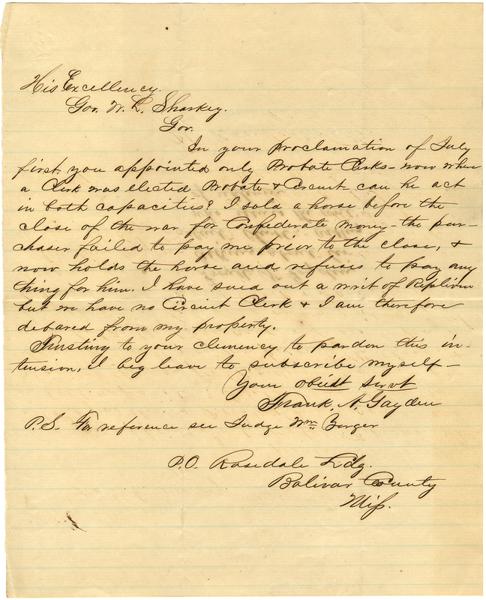 His Excellency.
Gov. W. L. Sharkey.
Gov.
In your Proclamation of July
first you appointed only Probate Clerks - now when
a Clerk was elected Probate & Circuit can he act
in both capacities? I sold a horse before the
close of the war for Confederate money - the pur-
chaser failed to pay me prior to the close, &
now holds the horse and refuses to pay any
thing for him. I have sued out a writ of Replevin
but we have no Circuit Clerk & I am therefore
debared from my property.
Trusting to your clemency to pardon this in-
tension, I beg leave to subscribe myself -
Your obedt servt
Frank. A. Gayden
P.S. For reference see Judge Wm Yerger
P.O. Rosedale Ldg.
Bolivar County
Miss.